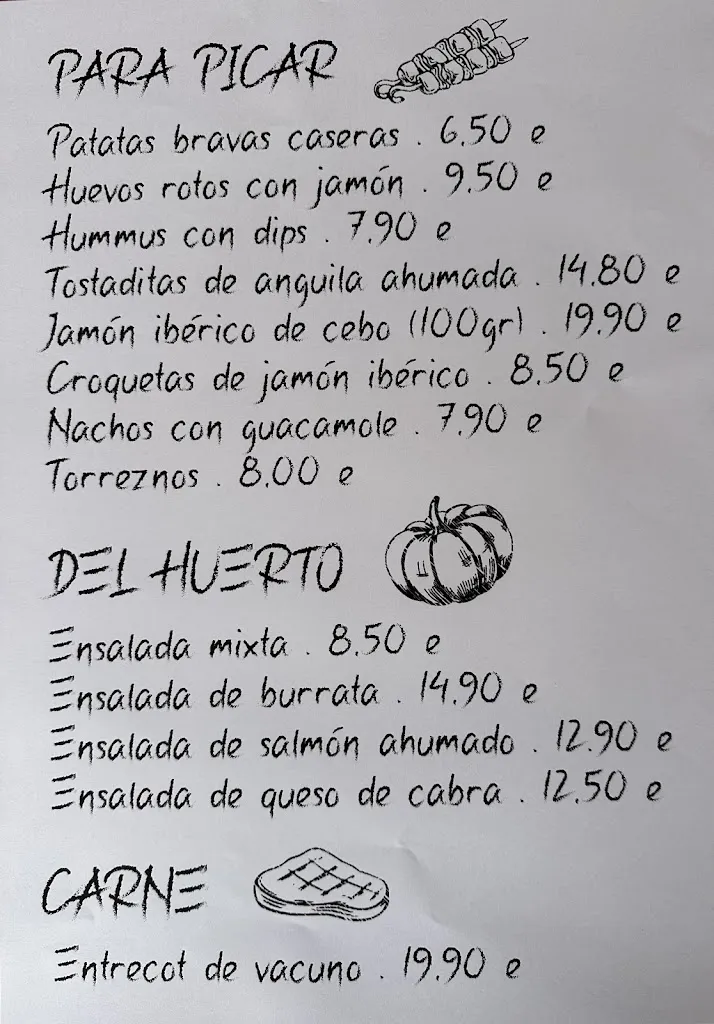 PARA PICAR
Patatas bravas caseras . 6.50 e
Huevos rotos con jamón . 9.50 e
Hummus con dips . 7.90 e
Tostaditas de anguila ahumada . 14.80 e
Jamón ibérico de cebo (100gr) . 19.90 e
Croquetas de jamón ibérico . 8.50 e
Nachos con guacamole . 7.90 e
Torreznos . 8.00 e
DEL HUERTO
Ensalada mixta . 8.50 e
Ensalada de burrata . 14.90 e
Ensalada de salmón ahumado . 12.90 e
Ensalada de queso de cabra . 12.50 e
CARNE
Entrecot de vacuno . 19.90 e